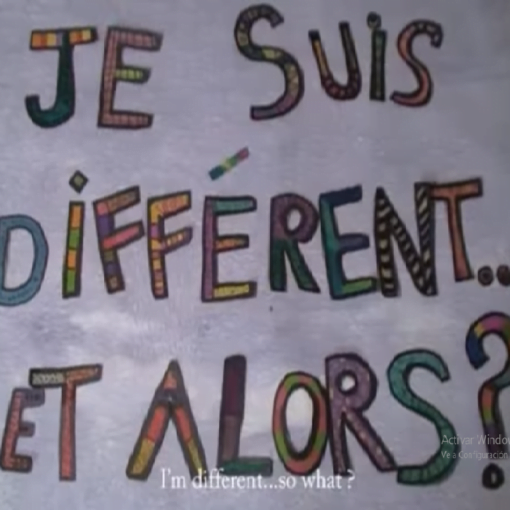 JE SUiS
DiFFÉRENT..
ET ALORS?
I'm different...so what ?
Activar Window
Ve a Configuración